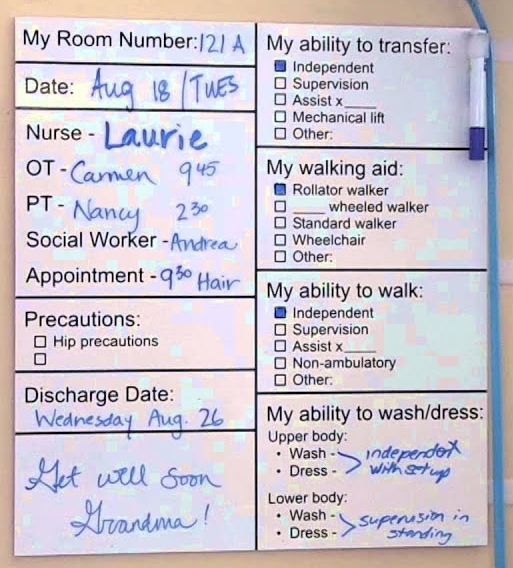 My Room Number: 121 A
Date: Aug 18 / TUES
Nurse - Laurie
OT - Carmen 9 45
PT - Nancy 2 30
Social Worker - Andrea
Appointment - 9 30 Hair
Precautions:
☐ Hip precautions
☐
Discharge Date:
Wednesday Aug. 26
Get well soon
Grandma!
My ability to transfer:
☑ Independent
☐ Supervision
☐ Assist x____
☐ Mechanical lift
☐ Other:
My walking aid:
☑ Rollator walker
☐ ____ wheeled walker
☐ Standard walker
☐ Wheelchair
☐ Other:
My ability to walk:
☑ Independent
☐ Supervision
☐ Assist x____
☐ Non-ambulatory
☐ Other:
My ability to wash/dress:
Upper body:
• Wash - independent
• Dress - with set up
Lower body:
• Wash - supervision in
• Dress - standing